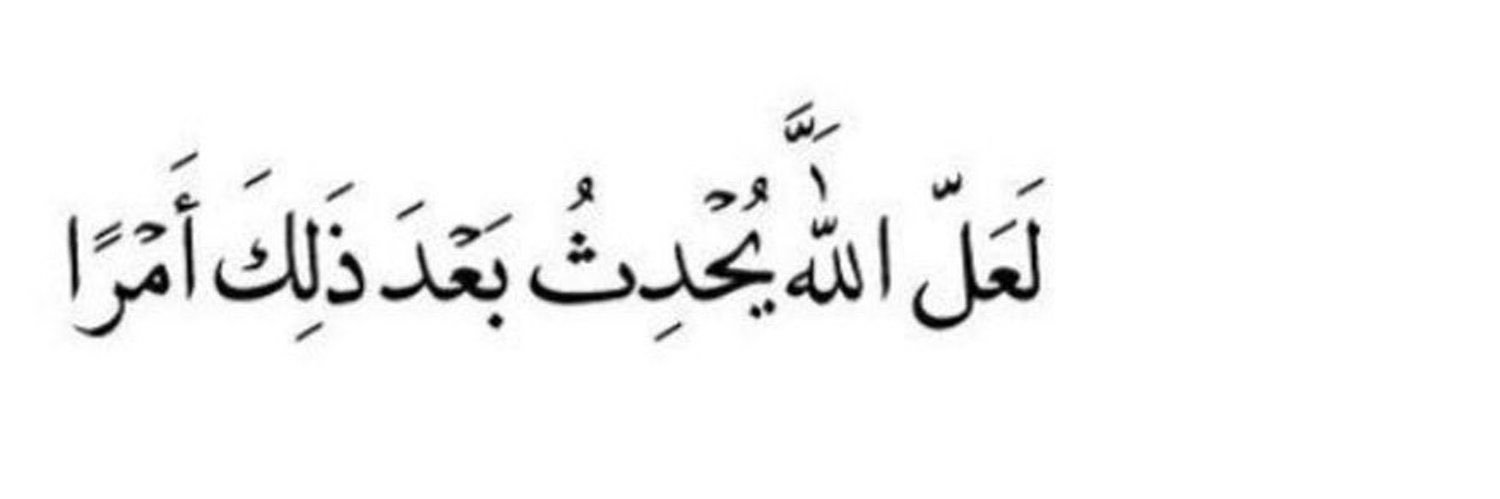 لَعَلَّ اللَّهَ يُحْدِثُ بَعْدَ ذَلِكَ أَمْرًا